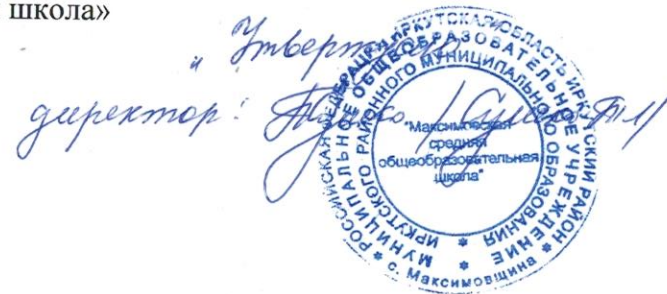 школа»
" Утверждаю
директор:
РОССИЙСКАЯ ФЕДЕРАЦИЯ ИРКУТСКАЯ ОБЛАСТЬ ИРКУТСКИЙ РАЙОН
с. Максимовщина
МУНИЦИПАЛЬНОЕ ОБЩЕОБРАЗОВАТЕЛЬНОЕ УЧРЕЖДЕНИЕ
ИРКУТСКОГО РАЙОННОГО МУНИЦИПАЛЬНОГО ОБРАЗОВАНИЯ
"Максимовская
средняя
общеобразовательная
школа"